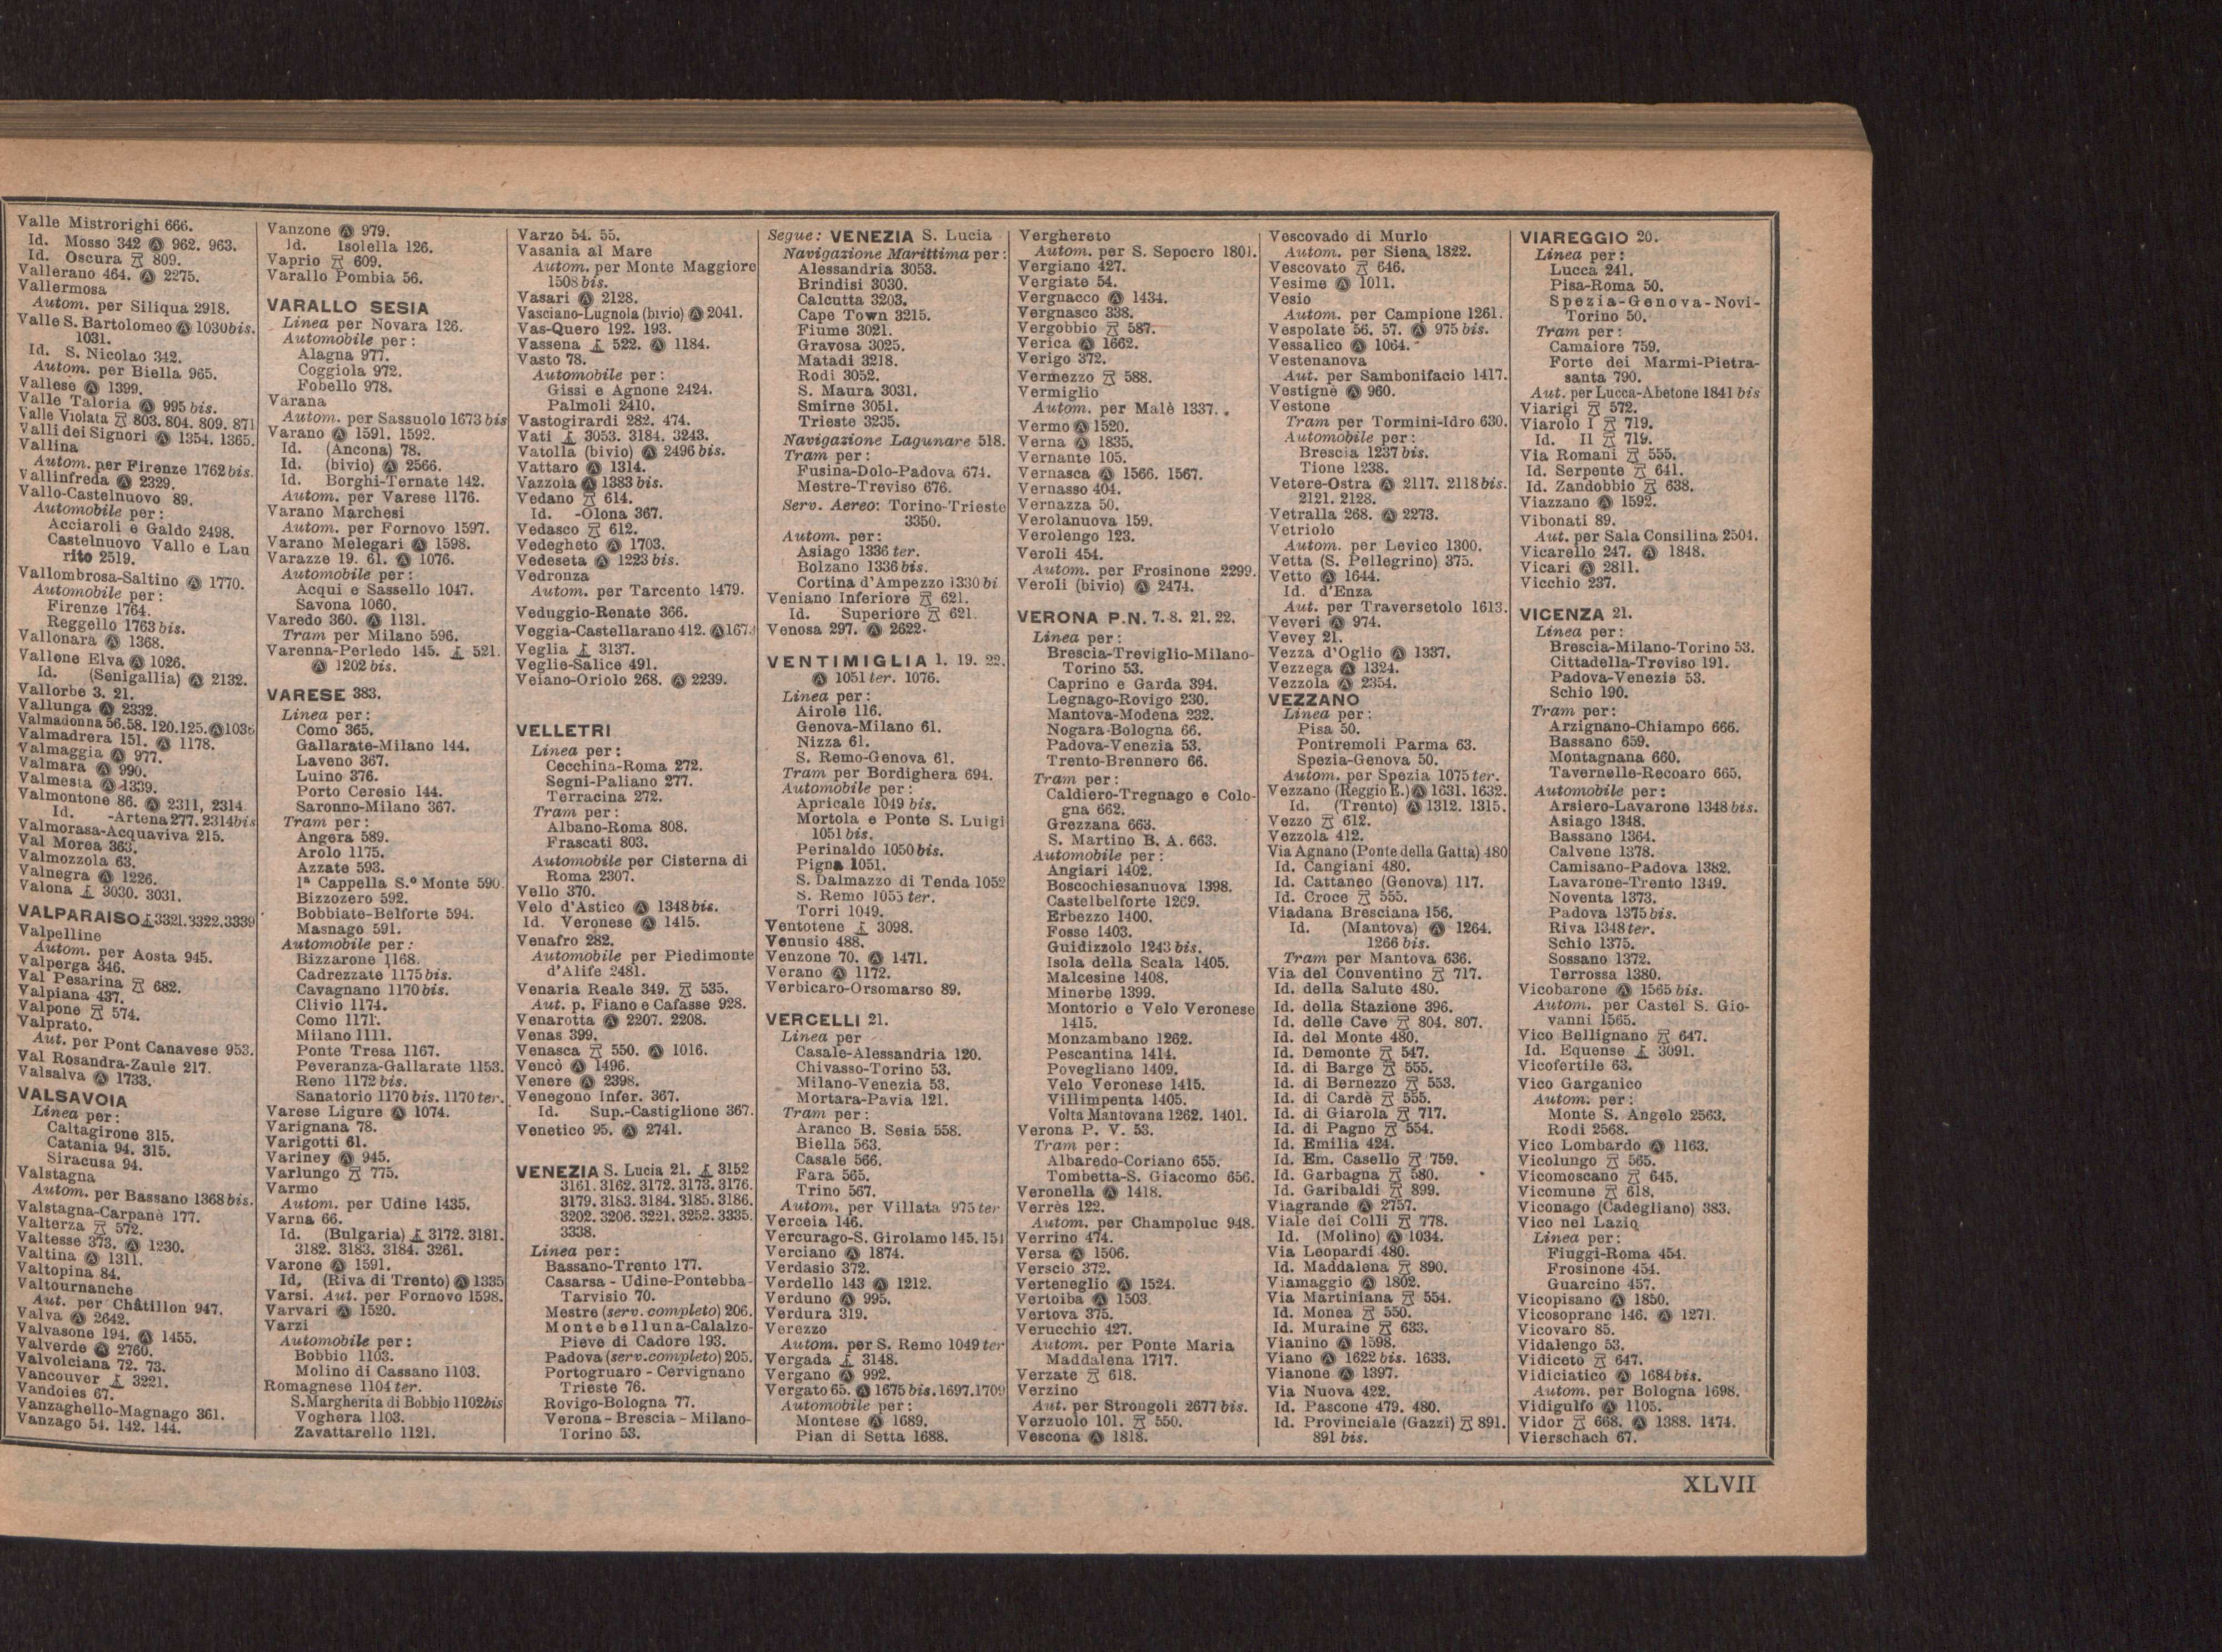 Valle Mistrorighi 666.
Id. Mosso 342 Ⓐ 962. 963.
Id. Oscura 809.
Vallerano 464. Ⓐ 2275.
Vallermosa
Autom. per Siliqua 2918.
Valle S. Bartolomeo Ⓐ 1030 bis.
1031.
Id. S. Nicolao 342.
Autom. per Biella 965.
Vallese Ⓐ 1399.
Valle Taloria Ⓐ 995 bis.
Valle Violata 803. 804. 809. 871
Valli dei Signori Ⓐ 1354. 1365.
Vallina
Autom. per Firenze 1762 bis.
Vallinfreda Ⓐ 2329.
Vallo-Castelnuovo 89.
Automobile per:
Acciaroli e Galdo 2498.
Castelnuovo Vallo e Lau
rito 2519.
Vallombrosa-Saltino Ⓐ 1770.
Automobile per:
Firenze 1764.
Reggello 1763 bis.
Vallonara Ⓐ 1368.
Vallone Elva Ⓐ 1026.
Id. (Senigallia) Ⓐ 2132.
Vallorbe 3. 21.
Vallunga Ⓐ 2332.
Valmadonna 56. 58. 120. 125. Ⓐ
Valmadrera 151. Ⓐ 1178.
Valmaggia Ⓐ 977.
Valmara Ⓐ 990.
Valmesta Ⓐ 1339.
Valmontone 86. Ⓐ 2311, 2314
Id. -Artena 277. 2314 bis
Valmorasa-Acquaviva 215.
Val Morea 363.
Valmozzola 63.
Valnegra Ⓐ 1226.
Valona 3030. 3031.
VALPARAISO 3321. 3322. 3339
Valpelline
Autom. per Aosta 945.
Valperga 346.
Val Pesarina 682.
Valpiana 437.
Valpone 574.
Valprato.
Aut. per Pont Canavese 953.
Val Rosandra-Zaule 217.
Valsalva Ⓐ 1733.
VALSAVOIA
Linea per:
Caltagirone 315.
Catania 94. 315.
Siracusa 94.
Valstagna
Autom. per Bassano 1368 bis.
Valstagna-Carpanè 177.
Valterza 572.
Valtesse 373. Ⓐ 1230.
Valtina Ⓐ 1311.
Valtopina 84.
Valtournanche
Aut. per Châtillon 947.
Valva Ⓐ 2642.
Valvasone 194. Ⓐ 1455.
Valverde Ⓐ 2760.
Valvolciana 72. 73.
Vancouver 3221.
Vandoies 67.
Vanzaghello-Magnago 361.
Vanzago 54. 142. 144.
Vanzone Ⓐ 979.
Id. Isolella 126.
Vaprio 609.
Varallo Pombia 56.
VARALLO SESIA
Linea per Novara 126.
Automobile per:
Alagna 977.
Coggiola 972.
Fobello 978.
Varana
Autom. per Sassuolo 1673 bis
Varano Ⓐ 1591. 1592.
Id. (Ancona) 78.
Id. (bivio) Ⓐ 2566.
Id. Borghi-Ternate 142.
Autom. per Varese 1176.
Varano Marchesi
Autom. per Fornovo 1597.
Varano Melegari Ⓐ 1598.
Varazze 19. 61. Ⓐ 1076.
Automobile per:
Acqui e Sassello 1047.
Savona 1060.
Varedo 360. Ⓐ 1131.
Tram per Milano 596.
Varenna-Perledo 145. 521.
Ⓐ 1202 bis.
VARESE 383.
Linea per:
Como 365.
Gallarate-Milano 144.
Laveno 367.
Luino 376.
Porto Ceresio 144.
Saronno-Milano 367.
Tram per:
Angera 589.
Arolo 1175.
Azzate 593.
1ª Cappella S.º Monte 590.
Bizzozero 592.
Bobbiate-Belforte 594.
Masnago 591.
Automobile per:
Bizzarone 1168.
Cadrezzate 1175 bis.
Cavagnano 1170 bis.
Clivio 1174.
Como 1171.
Milano 1111.
Ponte Tresa 1167.
Peveranza-Gallarate 1153.
Reno 1172 bis.
Sanatorio 1170 bis. 1170 ter.
Varese Ligure Ⓐ 1074.
Varignana 78.
Varigotti 61.
Variney Ⓐ 945.
Varlungo 775.
Varmo
Autom. per Udine 1435.
Varna 66.
Id. (Bulgaria) 3172. 3181.
3182. 3183. 3184. 3261.
Varone Ⓐ 1591.
Id. (Riva di Trento) Ⓐ 1335
Varsi. Aut. per Fornovo 1598.
Varvari Ⓐ 1520.
Varzi
Automobile per:
Bobbio 1103.
Molino di Cassano 1103.
Romagnese 1104 ter.
S. Margherita di Bobbio 1102 bis
Voghera 1103.
Zavattarello 1121.
Varzo 54. 55.
Vasania al Mare
Autom. per Monte Maggiore
1508 bis.
Vasari Ⓐ 2128.
Vasciano-Lugnola (bivio) Ⓐ 2041.
Vas-Quero 192. 193.
Vassena 522. Ⓐ 1184.
Vasto 78.
Automobile per:
Gissi e Agnone 2424.
Palmoli 2410.
Vastogirardi 282. 474.
Vati 3053. 3184. 3243.
Vatolla (bivio) Ⓐ 2496 bis.
Vattaro Ⓐ 1314.
Vazzola Ⓐ 1383 bis.
Vedano 614.
Id. -Olona 367.
Vedasco 612.
Vedegheto Ⓐ 1703.
Vedeseta Ⓐ 1223 bis.
Vedronza
Autom. per Tarcento 1479.
Veduggio-Renate 366.
Veggia-Castellarano 412. Ⓐ
Veglia 3137.
Veglie-Salice 491.
Veiano-Oriolo 268. Ⓐ 2239.
VELLETRI
Linea per:
Cecchina-Roma 272.
Segni-Paliano 277.
Terracina 272.
Tram per:
Albano-Roma 808.
Frascati 803.
Automobile per Cisterna di
Roma 2307.
Vello 370.
Velo d'Astico Ⓐ 1348 bis.
Id. Veronese Ⓐ 1415.
Venafro 282.
Automobile per Piedimonte
d'Alife 2481.
Venaria Reale 349. 535.
Aut. p. Fiano e Cafasse 928.
Venarotta Ⓐ 2207. 2208.
Venas 399.
Venasca 550. Ⓐ 1016.
Vencò Ⓐ 1496.
Venere Ⓐ 2398.
Venegono Infer. 367.
Id. Sup.-Castiglione 367.
Venetico 95. Ⓐ 2741.
VENEZIA S. Lucia 21. 3152
3161. 3162. 3172. 3173. 3176.
3179. 3183. 3184. 3185. 3186.
3202. 3206. 3221. 3252. 3335.
3338.
Linea per:
Bassano-Trento 177.
Casarsa - Udine-Pontebba-
Tarvisio 70.
Mestre (serv. completo) 206.
Montebelluna-Calalzo-
Pieve di Cadore 193.
Padova (serv. completo) 205.
Portogruaro - Cervignano
Trieste 76.
Rovigo-Bologna 77.
Verona - Brescia - Milano-
Torino 53.
Segue: VENEZIA S. Lucia
Navigazione Marittima per:
Alessandria 3053.
Brindisi 3030.
Calcutta 3203.
Cape Town 3215.
Fiume 3021.
Gravosa 3025.
Matadi 3218.
Rodi 3052.
S. Maura 3031.
Smirne 3051.
Trieste 3235.
Navigazione Lagunare 518.
Tram per:
Fusina-Dolo-Padova 674.
Mestre-Treviso 676.
Serv. Aereo: Torino-Trieste
3350.
Autom. per:
Asiago 1336 ter.
Bolzano 1336 bis.
Cortina d'Ampezzo 1330 bi
Veniano Inferiore 621.
Id. Superiore 621.
Venosa 297. Ⓐ 2622.
VENTIMIGLIA 1. 19. 22.
Ⓐ 1051 ter. 1076.
Linea per:
Airole 116.
Genova-Milano 61.
Nizza 61.
S. Remo-Genova 61.
Tram per Bordighera 694.
Automobile per:
Apricale 1049 bis.
Mortola e Ponte S. Luigi
1051 bis.
Perinaldo 1050 bis.
Pigna 1051.
S. Dalmazzo di Tenda 1052
S. Remo 1055 ter.
Torri 1049.
Ventotene 3098.
Venusio 488.
Venzone 70. Ⓐ 1471.
Verano Ⓐ 1172.
Verbicaro-Orsomarso 89.
VERCELLI 21.
Linea per
Casale-Alessandria 120.
Chivasso-Torino 53.
Milano-Venezia 53.
Mortara-Pavia 121.
Tram per:
Aranco B. Sesia 558.
Biella 563.
Casale 566.
Fara 565.
Trino 567.
Autom. per Villata 975 ter
Verceia 146.
Vercurago-S. Girolamo 145. 151
Verciano Ⓐ 1874.
Verdasio 372.
Verdello 143 Ⓐ 1212.
Verduno Ⓐ 995.
Verdura 319.
Verezzo
Autom. per S. Remo 1049 ter
Vergada 3148.
Vergano Ⓐ 992.
Vergato 65. Ⓐ 1675 bis. 1697. 1709
Automobile per:
Montese Ⓐ 1689.
Pian di Setta 1688.
Verghereto
Autom. per S. Sepocro 1801.
Vergiano 427.
Vergiate 54.
Vergnacco Ⓐ 1434.
Vergnasco 338.
Vergobbio 587.
Verica Ⓐ 1662.
Verigo 372.
Vermezzo 588.
Vermiglio
Autom. per Malè 1337.
Vermo Ⓐ 1520.
Verna Ⓐ 1835.
Vernante 105.
Vernasca Ⓐ 1566. 1567.
Vernasso 404.
Vernazza 50.
Verolanuova 159.
Verolengo 123.
Veroli 454.
Autom. per Frosinone 2299.
Veroli (bivio) Ⓐ 2474.
VERONA P.N. 7. 8. 21. 22.
Linea per:
Brescia-Treviglio-Milano-
Torino 53.
Caprino e Garda 394.
Legnago-Rovigo 230.
Mantova-Modena 232.
Nogara-Bologna 66.
Padova-Venezia 53.
Trento-Brennero 66.
Tram per:
Caldiero-Tregnago e Colo-
gna 662.
Grezzana 663.
S. Martino B. A. 663.
Automobile per:
Angiari 1402.
Boscochiesanuova 1398.
Castelbelforte 1269.
Erbezzo 1400.
Fosse 1403.
Guidizzolo 1243 bis.
Isola della Scala 1405.
Malcesine 1408.
Minerbe 1399.
Montorio e Velo Veronese
1415.
Monzambano 1262.
Pescantina 1414.
Povegliano 1409.
Velo Veronese 1415.
Villimpenta 1405.
Volta Mantovana 1262. 1401.
Verona P. V. 53.
Tram per:
Albaredo-Coriano 655.
Tombetta-S. Giacomo 656.
Veronella Ⓐ 1418.
Verrès 122.
Autom. per Champoluc 948.
Verrino 474.
Versa Ⓐ 1506.
Verscio 372.
Verteneglio Ⓐ 1524.
Vertoiba Ⓐ 1503.
Vertova 375.
Verucchio 427.
Autom. per Ponte Maria
Maddalena 1717.
Verzate 618.
Verzino
Aut. per Strongoli 2677 bis.
Verzuolo 101. 550.
Vescona Ⓐ 1818.
Vescovado di Murlo
Autom. per Siena 1822.
Vescovato 646.
Vesime Ⓐ 1011.
Vesio
Autom. per Campione 1261.
Vespolate 56. 57. Ⓐ 975 bis.
Vessalico Ⓐ 1064.
Vestenanova
Aut. per Sambonifacio 1417.
Vestignè Ⓐ 960.
Vestone
Tram per Tormini-Idro 630.
Automobile per:
Brescia 1237 bis.
Tione 1238.
Vetere-Ostra Ⓐ 2117. 2118 bis.
2121. 2128.
Vetralla 268. Ⓐ 2273.
Vetriolo
Autom. per Levico 1300.
Vetta (S. Pellegrino) 375.
Vetto Ⓐ 1644.
Id. d'Enza
Aut. per Traversetolo 1613.
Veveri Ⓐ 974.
Vevey 21.
Vezza d'Oglio Ⓐ 1337.
Vezzega Ⓐ 1324.
Vezzola Ⓐ 2354.
VEZZANO
Linea per:
Pisa 50.
Pontremoli Parma 63.
Spezia-Genova 50.
Autom. per Spezia 1075 ter.
Vezzano (Reggio E.) Ⓐ 1631. 1632.
Id. (Trento) Ⓐ 1312. 1315.
Vezzo 612.
Vezzola 412.
Via Agnano (Ponte della Gatta) 480
Id. Cangiani 480.
Id. Cattaneo (Genova) 117.
Id. Croce 555.
Viadana Bresciana 156.
Id. (Mantova) Ⓐ 1264.
1266 bis.
Tram per Mantova 636.
Via del Conventino 717.
Id. della Salute 480.
Id. della Stazione 396.
Id. delle Cave 804. 807.
Id. del Monte 480.
Id. Demonte 547.
Id. di Barge 555.
Id. di Bernezzo 553.
Id. di Cardè 555.
Id. di Giarola 717.
Id. di Pagno 554.
Id. Emilia 424.
Id. Em. Casello 759.
Id. Garbagna 580.
Id. Garibaldi 899.
Viagrande Ⓐ 2757.
Viale dei Colli 778.
Id. (Molino) Ⓐ 1034.
Via Leopardi 480.
Id. Maddalena 890.
Viamaggio Ⓐ 1802.
Via Martiniana 554.
Id. Monea 550.
Id. Muraine 633.
Vianino Ⓐ 1598.
Viano Ⓐ 1622 bis. 1633.
Vianone Ⓐ 1397.
Via Nuova 422.
Id. Pascone 479. 480.
Id. Provinciale (Gazzi) 891.
891 bis.
VIAREGGIO 20.
Linea per:
Lucca 241.
Pisa-Roma 50.
Spezia-Genova-Novi-
Torino 50.
Tram per:
Camaiore 759.
Forte dei Marmi-Pietra-
santa 790.
Aut. per Lucca-Abetone 1841 bis
Viarigi 572.
Viarolo I 719.
Id. II 719.
Via Romani 555.
Id. Serpente 641.
Id. Zandobbio 638.
Viazzano Ⓐ 1592.
Vibonati 89.
Aut. per Sala Consilina 2504.
Vicarello 247. Ⓐ 1848.
Vicari Ⓐ 2811.
Vicchio 237.
VICENZA 21.
Linea per:
Brescia-Milano-Torino 53.
Cittadella-Treviso 191.
Padova-Venezia 53.
Schio 190.
Tram per:
Arzignano-Chiampo 666.
Bassano 659.
Montagnana 660.
Tavernelle-Recoaro 665.
Automobile per:
Arsiero-Lavarone 1348 bis.
Asiago 1348.
Bassano 1364.
Calvene 1378.
Camisano-Padova 1382.
Lavarone-Trento 1349.
Noventa 1373.
Padova 1375 bis.
Riva 1348 ter.
Schio 1375.
Sossano 1372.
Terrossa 1380.
Vicobarone Ⓐ 1565 bis.
Autom. per Castel S. Gio-
vanni 1565.
Vico Bellignano 647.
Id. Equense 3091.
Vicofertile 63.
Vico Garganico
Autom. per:
Monte S. Angelo 2563.
Rodi 2568.
Vico Lombardo Ⓐ 1163.
Vicolungo 565.
Vicomoscano 645.
Vicomune 618.
Viconago (Cadegliano) 383.
Vico nel Lazio
Linea per:
Fiuggi-Roma 454.
Frosinone 454.
Guarcino 457.
Vicopisano Ⓐ 1850.
Vicosoprano 146. Ⓐ 1271.
Vicovaro 85.
Vidalengo 53.
Vidiceto 647.
Vidiciatico Ⓐ 1684 bis.
Autom. per Bologna 1698.
Vidigulfo Ⓐ 1105.
Vidor 668. Ⓐ 1388. 1474.
Vierschach 67.
XLVII